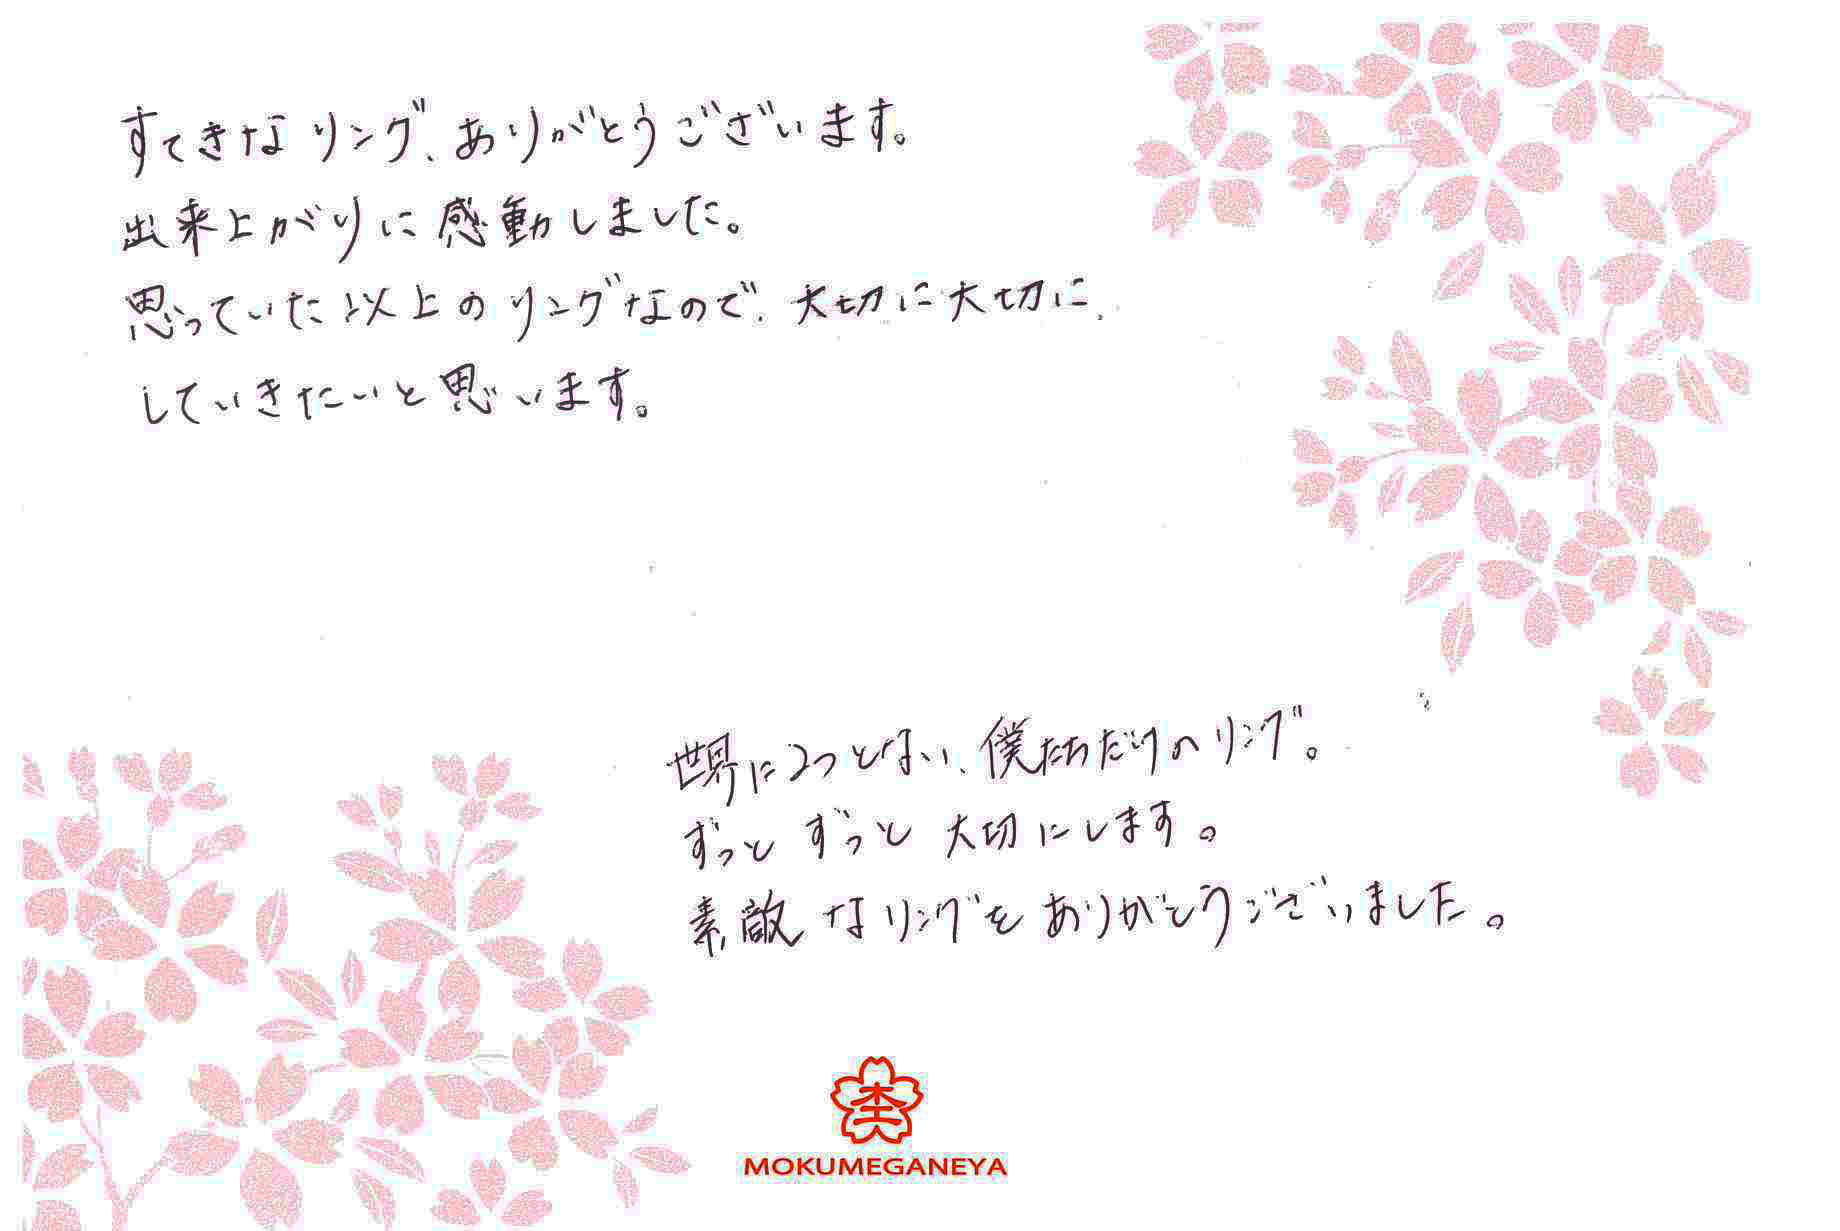 すてきなリング、ありがとうございます。
出来上がりに感動しました。
思っていた以上のリングなので、大切に大切に、
していきたいと思います。
世界に2つとない、僕たちだけのリング。
ずっとずっと大切にします。
素敵なリングをありがとうございました。
MOKUMEGANEYA